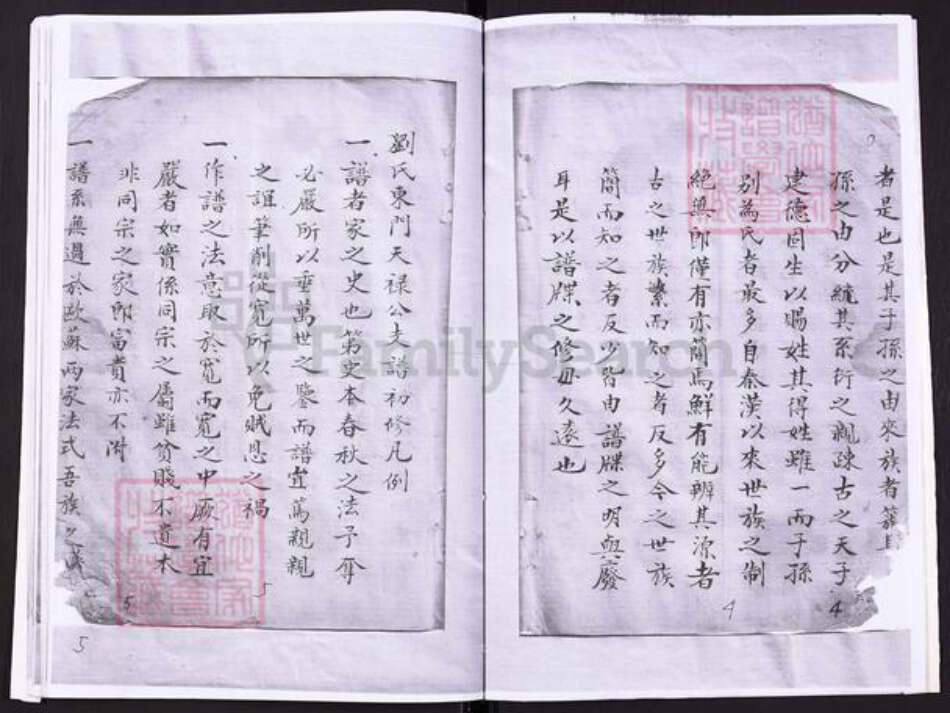 者是也是其子孫之由來族者
孫之由分統其系衍之親疎古之天子
建德因生以賜姓其得姓雖一而子孫
別為氏者最多自秦漢以來世族之制
絕無即僅有亦簡焉鮮有能辨其源者
古之世族繁而知之者反多今之世族
簡而知之者反少皆由譜牒之明與廢
耳是以譜牒之修毋久遠也
4
4
劉氏東門天祿公支譜初修凡例
一譜者家之史也第史本春秋之法予奪
必嚴所以垂萬世之鑒而譜宜篤親親
之誼筆削從寬所以免賊恩之禍
一作譜之法意取於寬而寬之中厥有宜
嚴者如實係同宗之屬雖貧賤不遺木
非同宗之家即富貴亦不附
一譜系無過於歐蘇兩家法式吾族之
5
5
5
FamilySearch